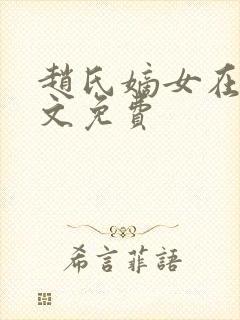 趙氏嫡女在
文免費
希言菲語